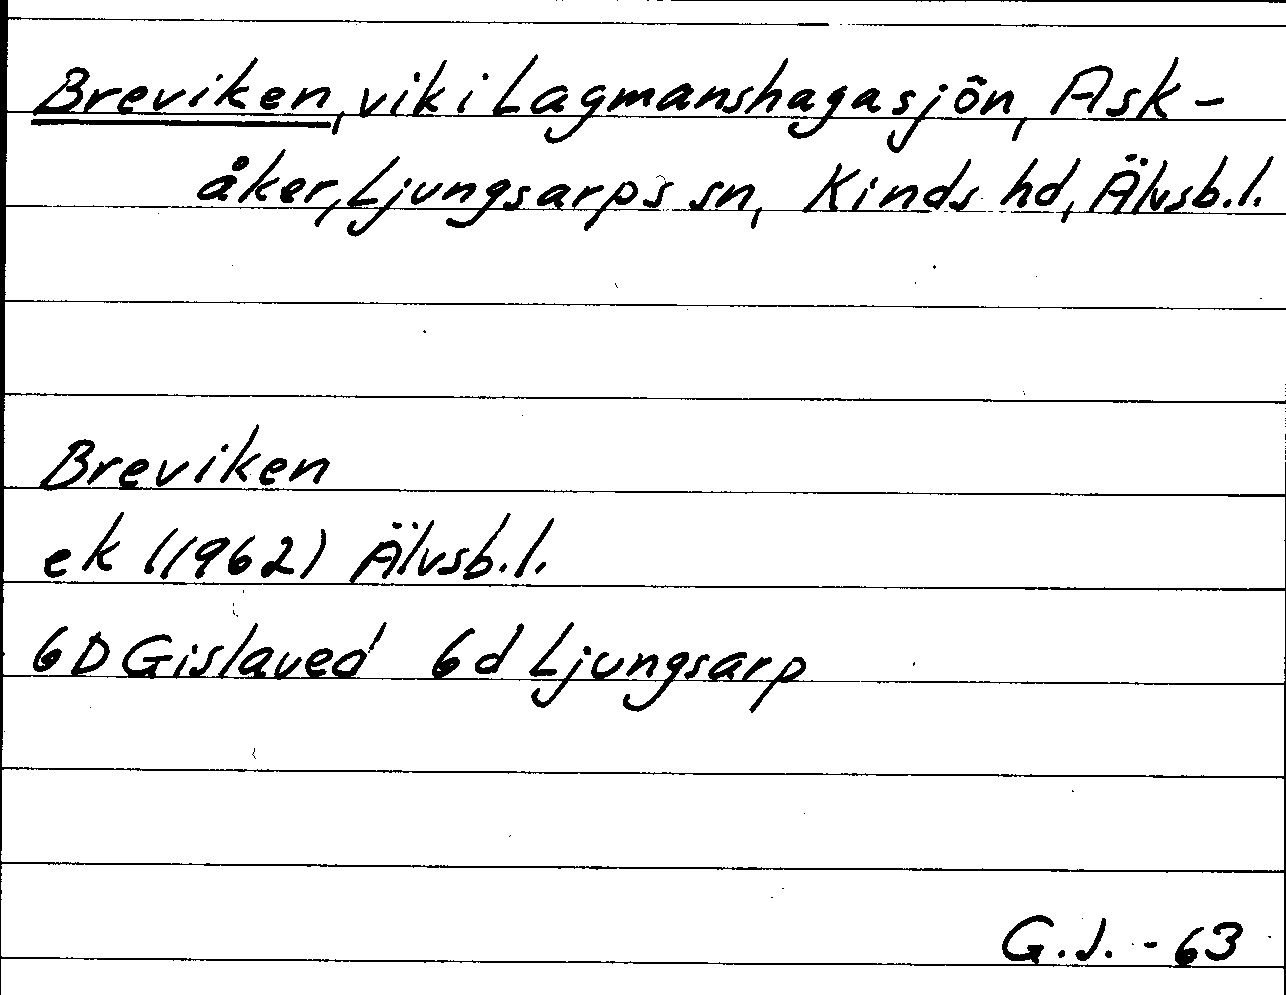 Breviken, vik i Lagmanshagasjön, Ask-
åker, Ljungsarps sn, Kinds hd, Älvsb.l.
Breviken
ek (1962) Älvsb.l.
6D Gislaved 6d Ljungsarp
G.J. - 63